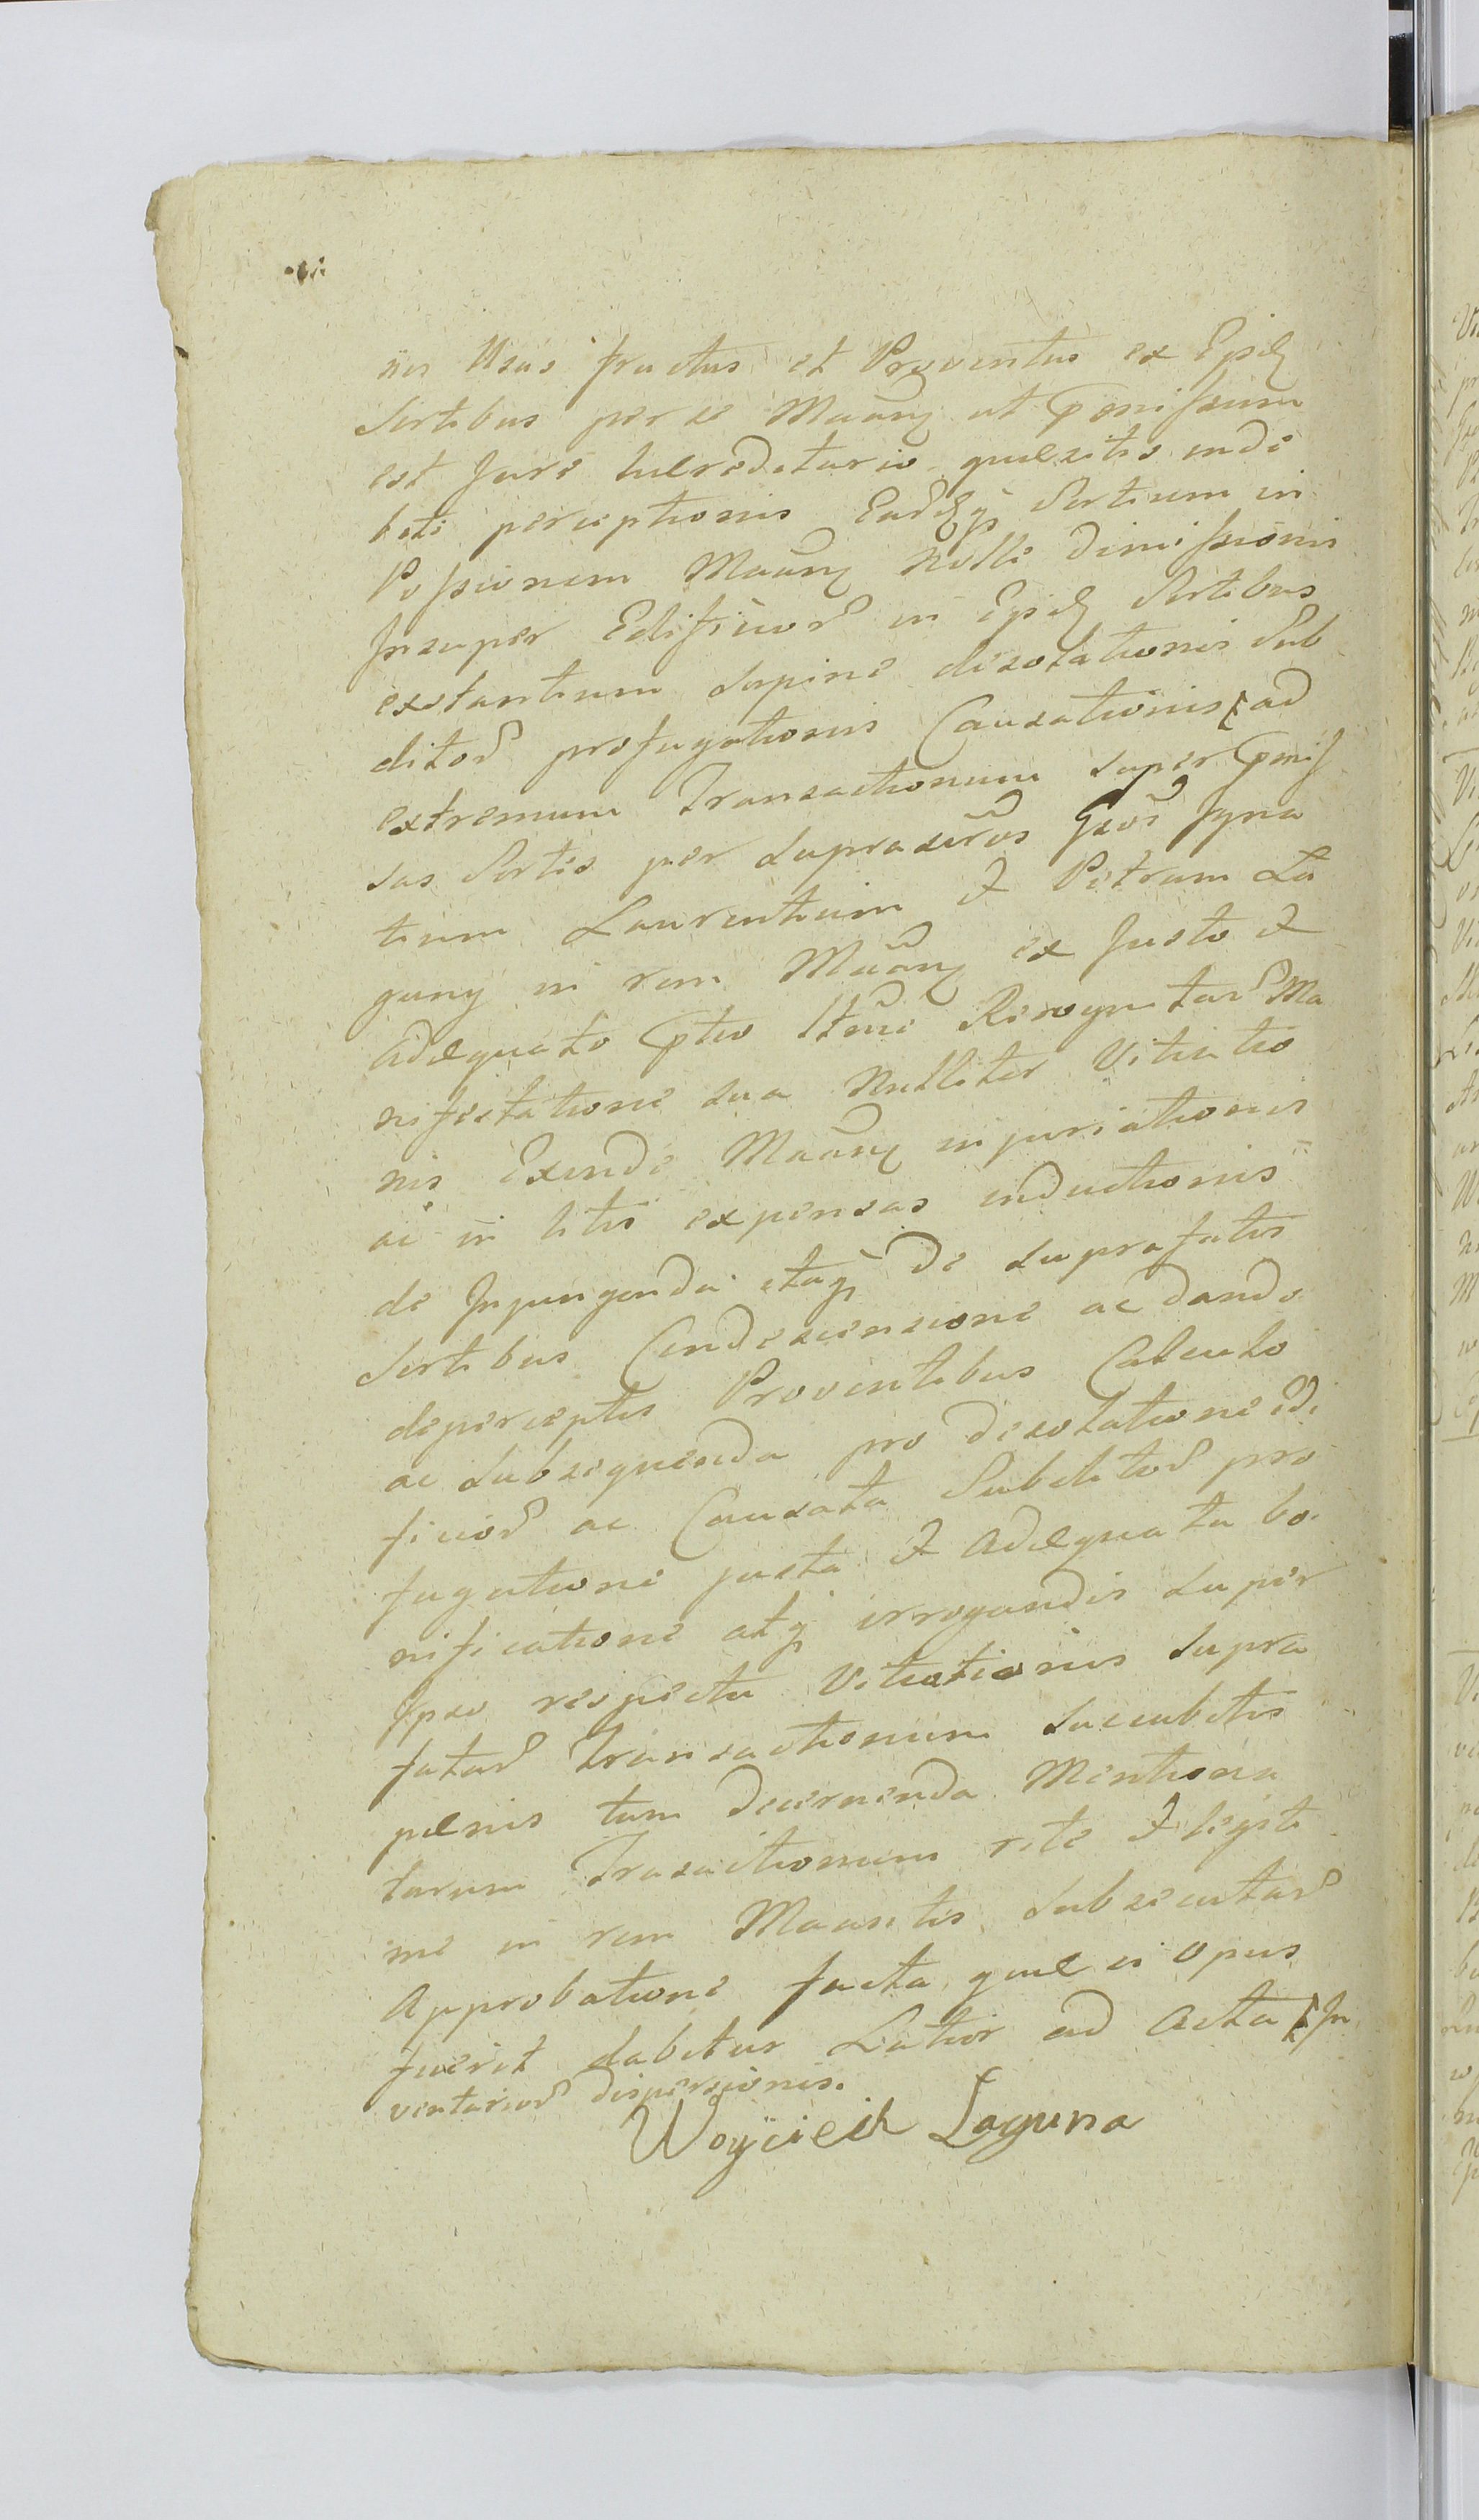 iis Usus fructus et Proventus ex Eysd
Sortibus per se Maãng ut pmissum
est Jure hæreditario quæsitis inde
biti perceptionis Eardq Sortium in
Possionem Maãng Nolle dimissionis
Insuper Edificior in Eisd Sortibus
exstantium supine desolationis Sub
ditor profugationis Causationis ad
extremum Transactionum super pmis
sas Sortis per suprascros Gsos Igna
tium Laurentium & Petrum La
guny in rem Maãng ex Justo &
Adæquato ptio Itme Recognitar Ma
nifestatione sua Nulliter Vitiatio
nis Exinde Maãng injuriationis
ac in litis expensas inductionis
de Injungenda itaq de suprafatis
Sortibus Condescensione ac dando
deperceptis Proventibus Calculo
ac subsequenda pro desolatione Edi
ficior ac Causata Subditor pro
fugatione justa & Adæquata bo
nificatione atq irrogandis super
Ipso respectu Vitiationis supra
fatar Transactionum succubitis
pænis tum decernenda Mentiona
tarum Trasactionum rite & legiti
me in rem Maantis subsecutar
Approbatione facta quæ ei opus
fuerit dabitur Latior ad Acta In
ventarior dispersionis.
Woyciech Laguna